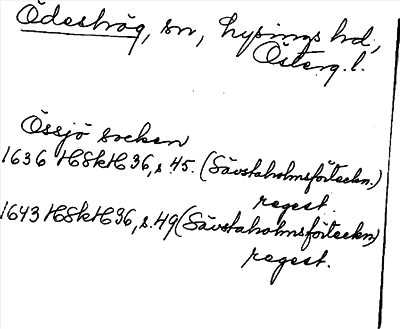 Ödeshög, sn, Lysings hd,
Österg.l.
Össjö socken
1636 HSkH 36, s. 45. (Sävstaholmsförteckn.)
regest.
1643 HSkH 36, s. 49 (Sävstaholmsförteckn)
regest.